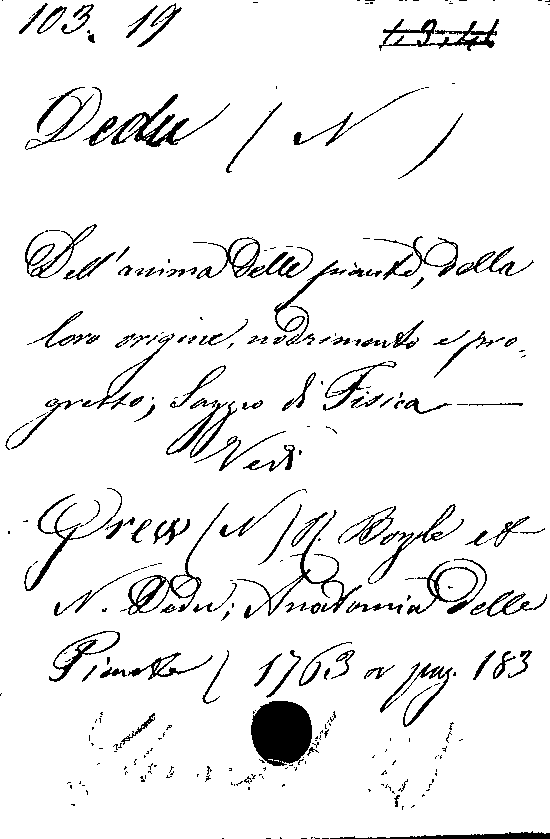 103. 19
Dedu (N)
Dell'anima delle piante, della
loro origine, nodrimento e pro-
gresso; Saggio di Fisica
Vedi
Grew (N) R. Boyle et
N. Dedu; Anatomia delle
Piante 1763 a pag. 183